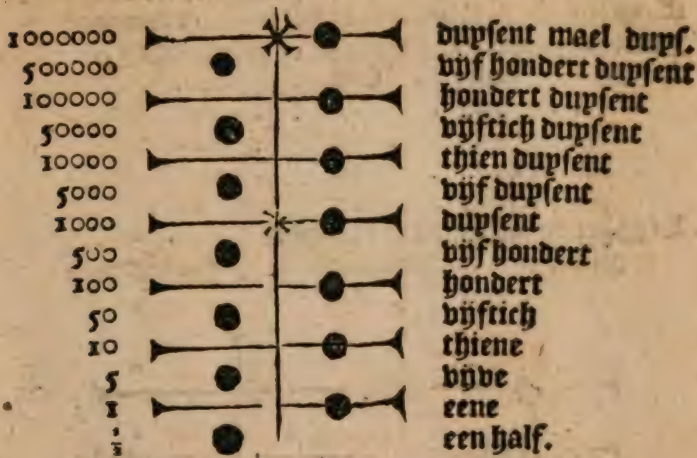 1000000 duysent mael duys.
500000 vijf hondert duysent
100000 hondert duysent
50000 vijftich duysent
10000 thien duysent
5000 vijf duysent
1000 duysent
500 vijf hondert
100 hondert
50 vijftich
10 thiene
5 vijve
1 eene
½ een half.